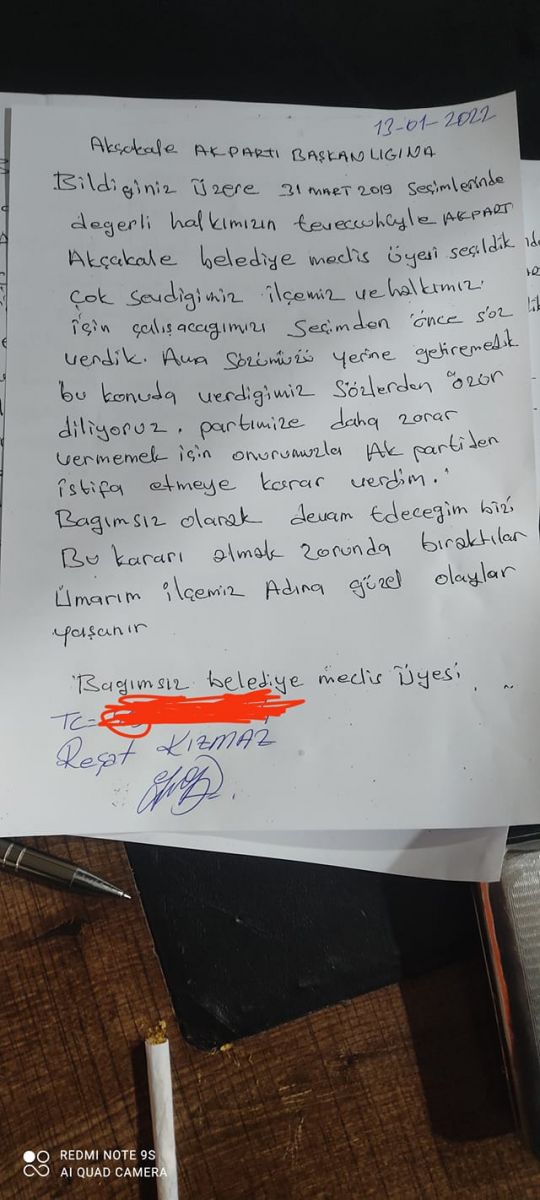 13-01-2022
Akçakale AKPARTİ BAŞKANLIGINA
Bildiginiz Üzere 31 MART 2019 seçimlerinde
degerli halkımızın teveccühüyle AKPARTİ
Akçakale belediye meclis üyesi seçildik
çok sevdigimiz ilçemiz ve halkımız
için çalışacagımızı seçimden önce söz
verdik. Ama sözümüzü yerine getiremedik
bu konuda verdigimiz sözlerden özür
diliyoruz. partimize daha zarar
vermemek için onurumuzla Ak partiden
istifa etmeye karar verdim.
Bagımsız olarak devam Edecegim bizi
Bu kararı almak zorunda bıraktılar
Ümarım ilçemiz Adına güzel olaylar
yaşanır
Bagımsız belediye meclis Üyesi
TC=
Reşat KIZMAZ
REDMI NOTE 9S
AI QUAD CAMERA